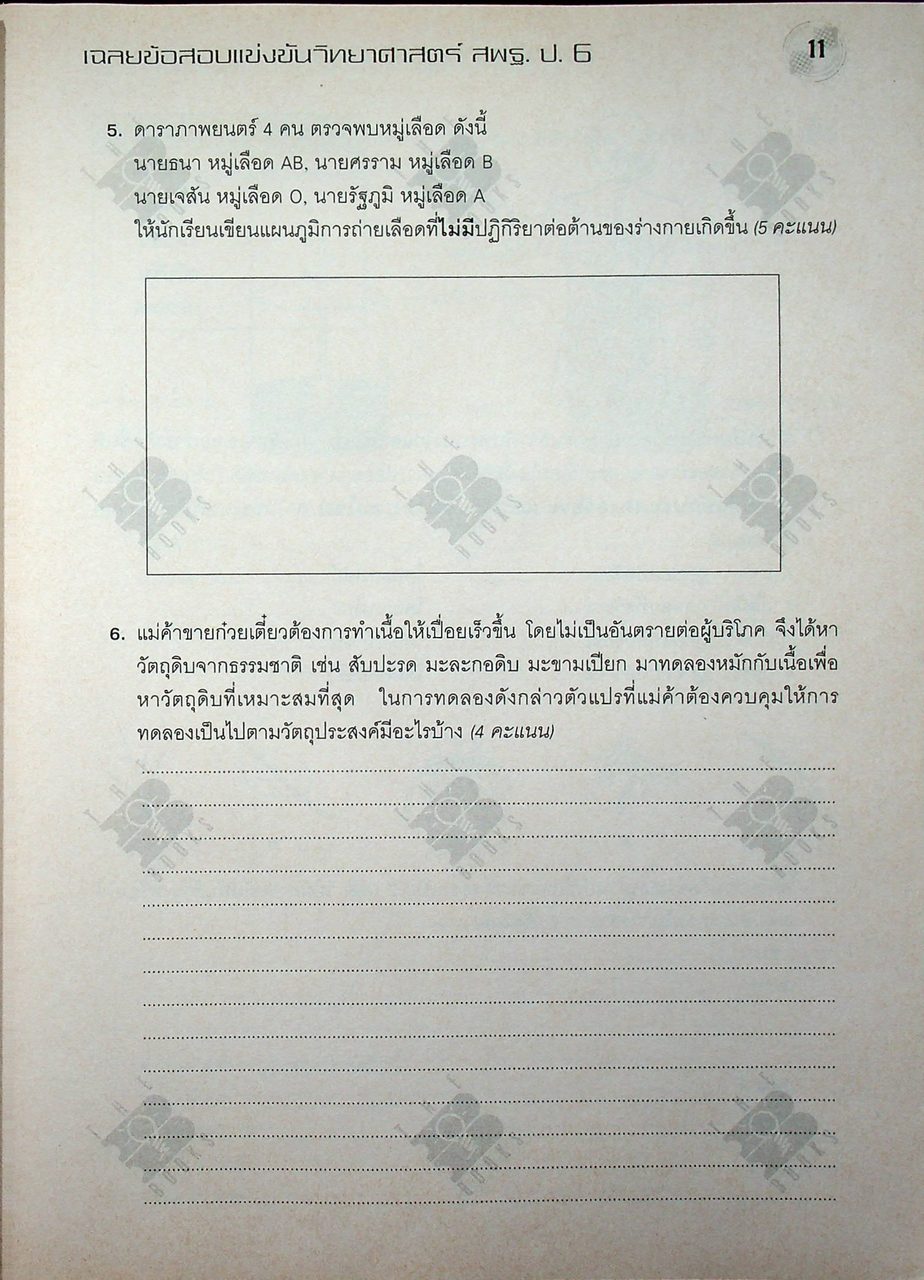 เฉลยข้อสอบแข่งขันวิทยาศาสตร์ สพฐ. ป. 6
11
5. ดาราภาพยนตร์ 4 คน ตรวจพบหมู่เลือด ดังนี้
นายธนา หมู่เลือด AB, นายศรราม หมู่เลือด B
นายเจสัน หมู่เลือด O, นายรัฐภูมิ หมู่เลือด A
ให้นักเรียนเขียนแผนภูมิการถ่ายเลือดที่ไม่มีปฏิกิริยาต่อต้านของร่างกายเกิดขึ้น (5 คะแนน)
6. แม่ค้าขายก๋วยเตี๋ยวต้องการทำเนื้อให้เปื่อยเร็วขึ้น โดยไม่เป็นอันตรายต่อผู้บริโภค จึงได้หา
วัตถุดิบจากธรรมชาติ เช่น สับปะรด มะละกอดิบ มะขามเปียก มาทดลองหมักกับเนื้อเพื่อ
หาวัตถุดิบที่เหมาะสมที่สุด ในการทดลองดังกล่าวตัวแปรที่แม่ค้าต้องควบคุมให้การ
ทดลองเป็นไปตามวัตถุประสงค์มีอะไรบ้าง (4 คะแนน)
THE BOOKS
THE BOOKS
THE BOOKS
THE BOOKS
THE BOOKS
THE BOOKS
THE BOOKS
THE BOOKS
THE BOOKS
THE BOOKS
THE BOOKS
THE BOOKS